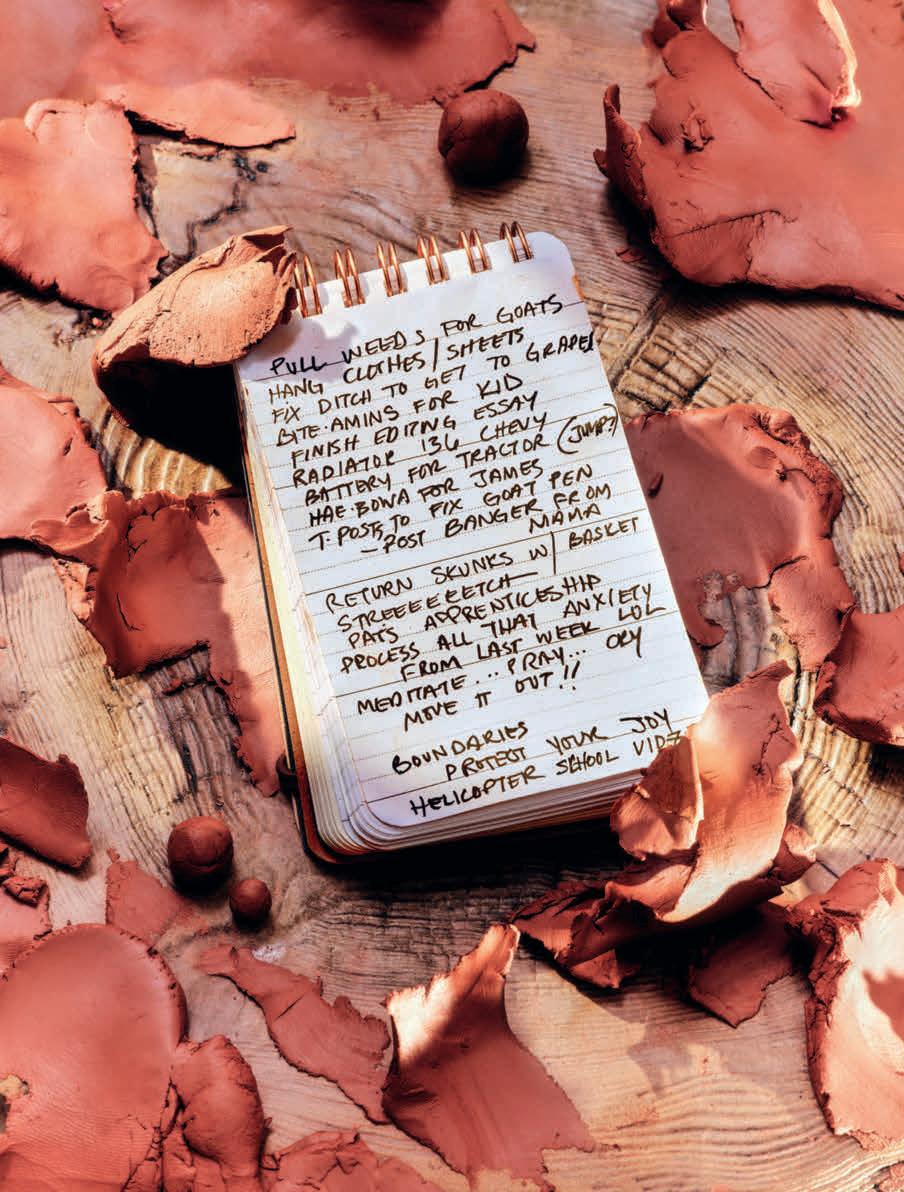 PULL WEEDS FOR GOATS
HANG CLOTHES / SHEETS
FIX DITCH TO GET TO GRAPE
BITE·AMINS FOR KID
FINISH EDITING ESSAY
RADIATOR 136 CHEVY
BATTERY FOR TRACTOR (JUMP?)
HAE·BOWA FOR JAMES
T·POSTS TO FIX GOAT PEN
– POST BANGER FROM
MAMA
RETURN SKUNKS W/ BASKET
STREEEEEETCH
PATS APPRENTICESHIP
PROCESS ALL THAT ANXIETY
FROM LAST WEEK LOL
MEDITATE... PRAY... CRY
MOVE IT OUT!!
BOUNDARIES
PROTECT YOUR JOY
HELICOPTER SCHOOL VIDZ